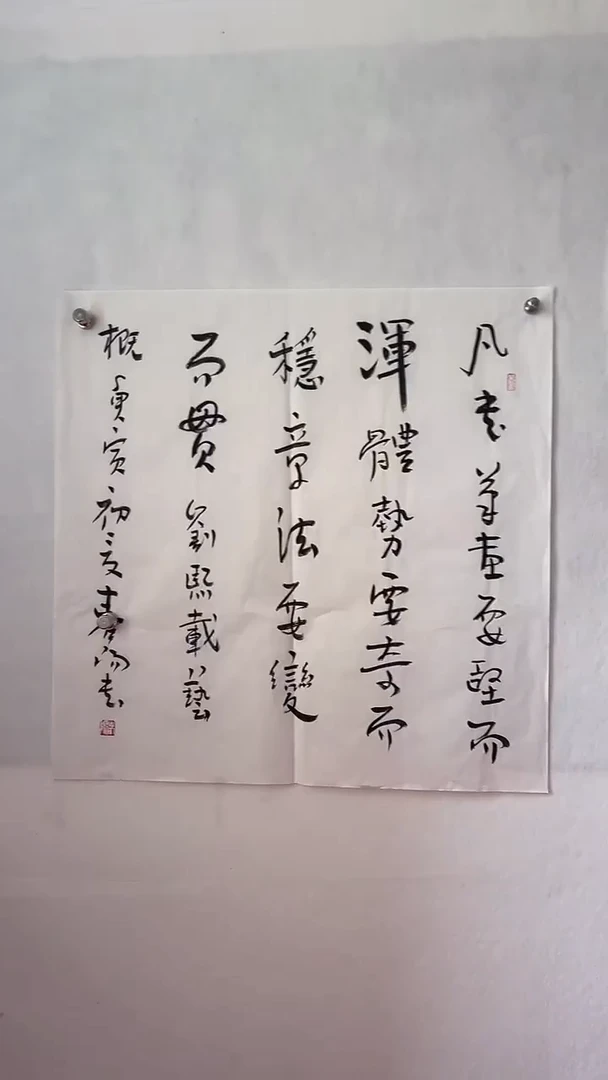 凡書筆畫要堅而
渾體勢要奇而
穩章法要變
而貫劉熙載藝
概庚寅初夏春陽書